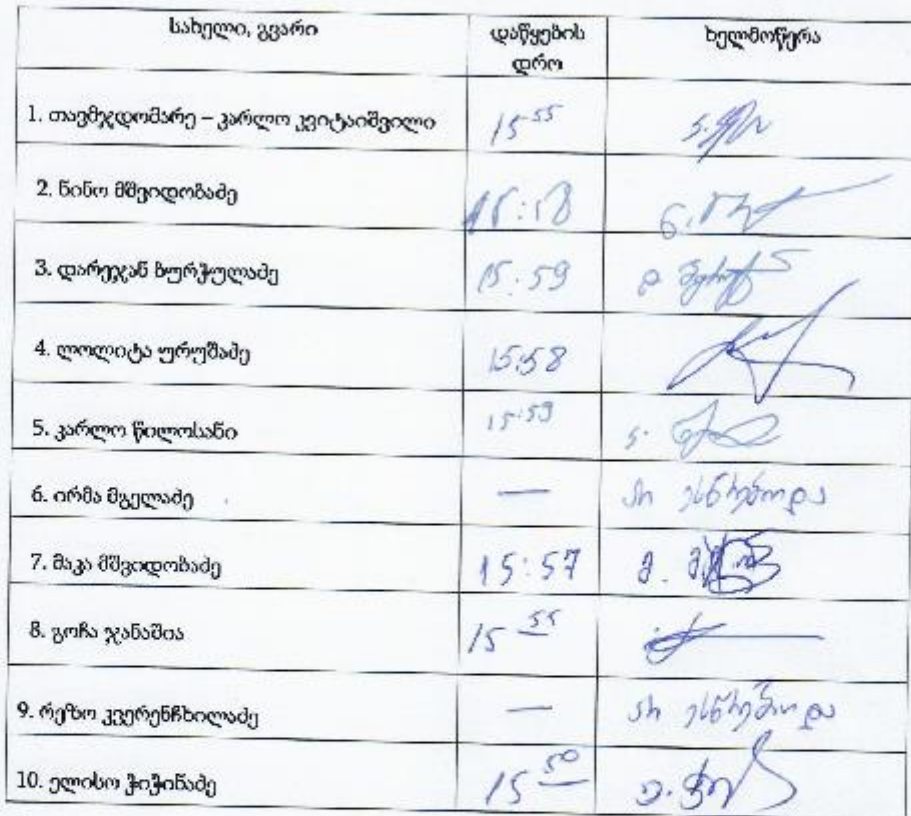 სახელი, გვარი დაწყების ხელმოწერა
დრო
1. თავმჯდომარე – კარლო კვიტაიშვილი 15 55
2. ნინო მშვიდობაძე 15:58
3. დარეჯან ბურჭულაძე 15:59
4. ლოლიტა ურუშაძე 15:58
5. კარლო წილოსანი 15:59
6. ირმა მგელაძე — არ ესწრებოდა
7. მაკა მშვიდობაძე 15:57
8. გოჩა ჯანაშია 15 55
9. რეზო კვერენჩხილაძე — არ ესწრებოდა
10. ელისო ჭიჭინაძე 15 50